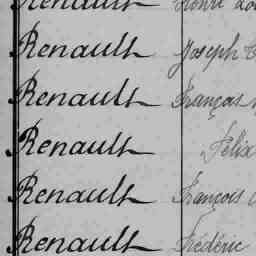 Renault
Renault Joseph
Renault François
Renault Félix
Renault François
Renault Frédéric